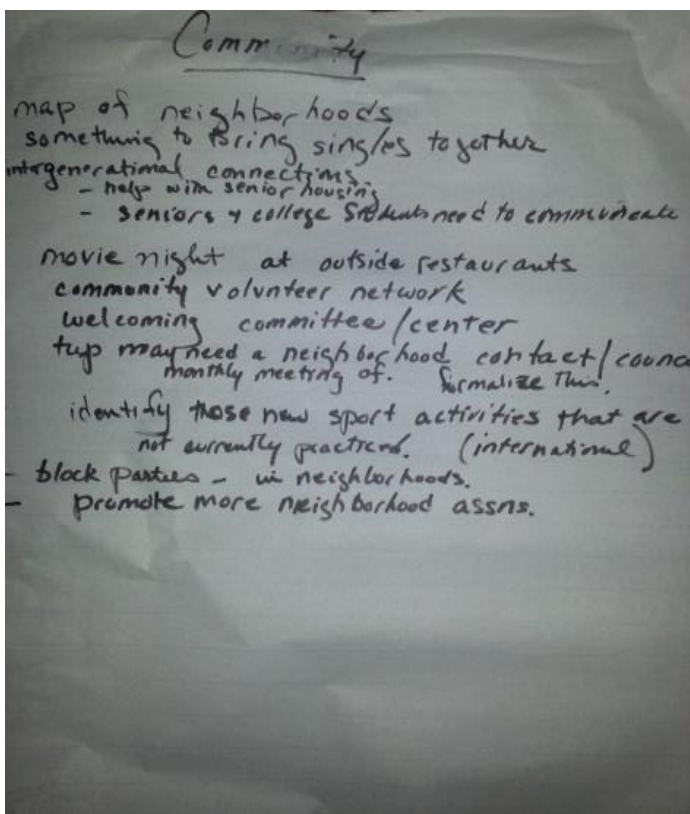 Community
map of neighborhoods
something to Bring singles together
intergenerational connections
- help with senior housing
- seniors & college students need to communicate
movie night at outside restaurants
community volunteer network
welcoming committee/center
twp may need a neighborhood contact/counc
monthly meeting of. formalize This.
identify those new sport activities that are
not currently practiced. (international)
- block parties - in neighborhoods.
- promote more neighborhood assns.